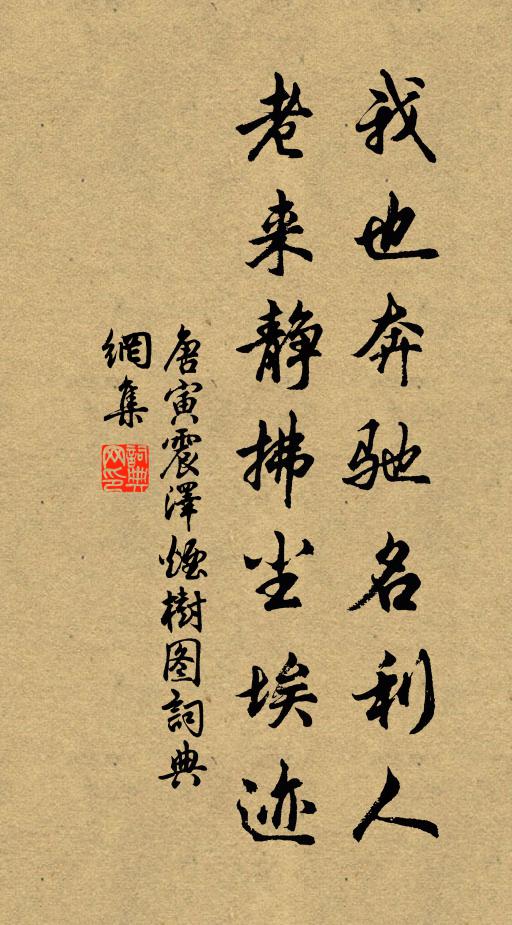 我也奔驰名利人
老来静拂尘埃迹
唐寅震澤烟樹图詞典
網集
詞典网印